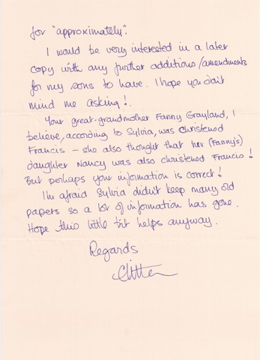 for "approximately".
I would be very interested in a later
copy with any further additions/amendments
for my sons to have. I hope you don't
mind me asking!.
Your great-grandmother Fanny Grayland, I
believe, according to Sylvia, was christened
Francis – she also thought that her (Fanny's)
daughter Nancy was also christened Francis!
But perhaps your information is correct!
I'm afraid Sylvia didn't keep many old
papers so a lot of information has gone.
Hope this little bit helps anyway.
Regards